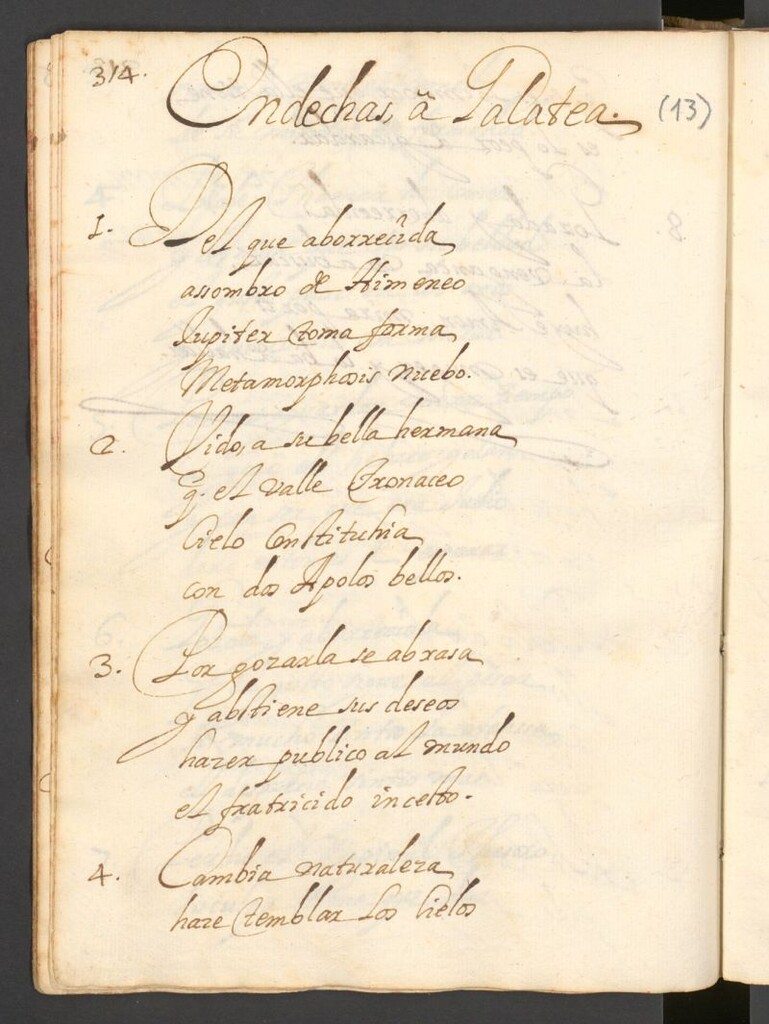 314.
Endechas, ã Galatea.
(13)
1. Del que aborrecida
assombro de Himeneo
Jupiter toma forma
Metamorphosis nuebo.
2. Vido, a su bella hermana
q̃. el valle Cronaceo
Cielo Constituhia
con dos Apolos bellos.
3. Por gozarla se abrasa
y abstiene sus deseos
hazer publico al mundo
el fratricido incesto.
4. Cambia naturaleza
haze temblar los Cielos